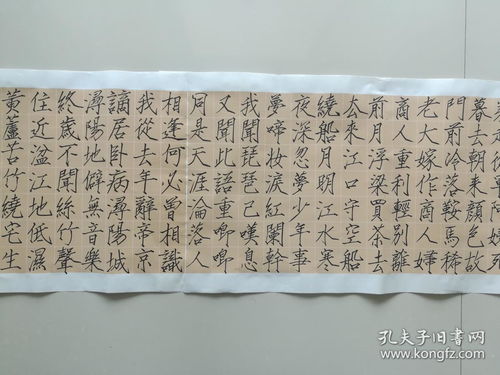 暮去朝來顏色故
門前冷落鞍馬稀
老大嫁作商人婦
商人重利輕別離
前月浮梁買茶去
去來江口守空船
繞船月明江水寒
夜深忽夢少年事
夢啼妝淚紅闌幹
我聞琵琶已嘆息
又聞此語重唧唧
同是天涯淪落人
相逢何必曾相識
我從去年辭帝京
謫居臥病潯陽城
潯陽地僻無音樂
終歲不聞絲竹聲
住近湓江地低濕
黃蘆苦竹繞宅生
孔夫子旧书网
www.kongfz.com